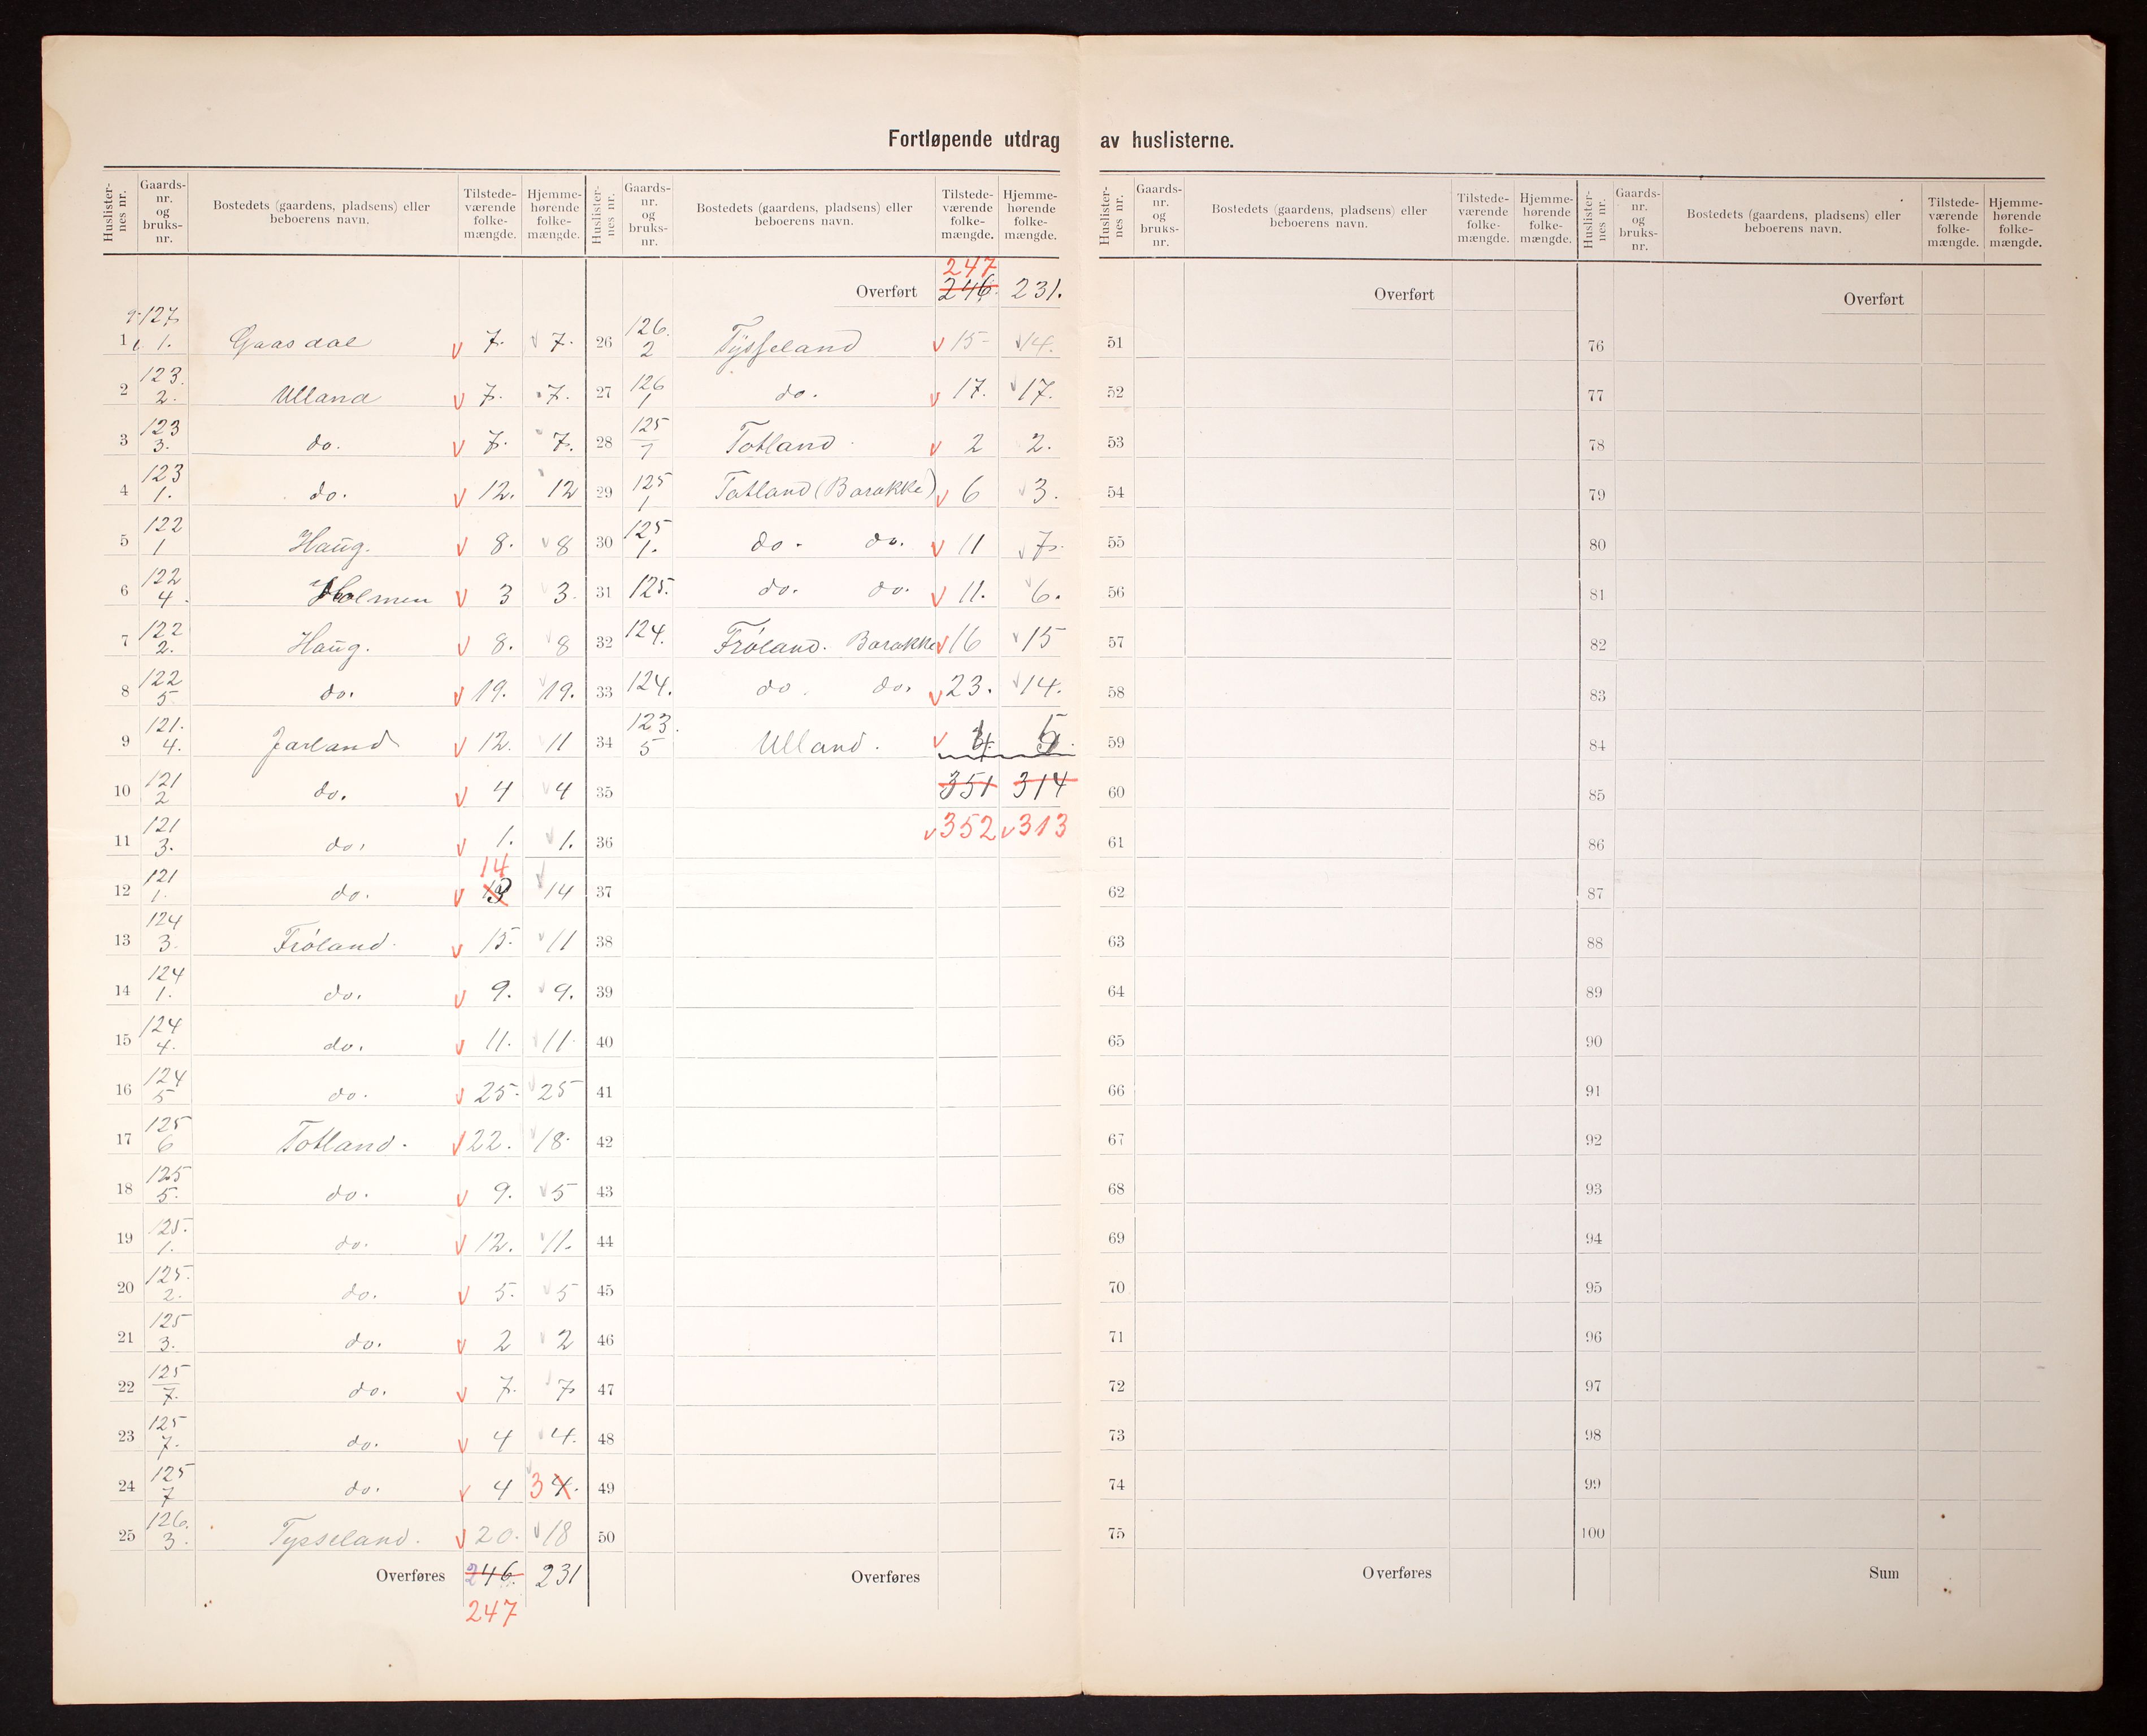 Fortløpende utdrag av huslisterne.
Huslisternes nr. Gaards-nr. og bruks-nr. Bostedets (gaardens, pladsens) eller beboerens navn. Tilstedeværende folkemængde. Hjemmehørende folkemængde.
g 127 b 1. 1 Gaasdal v 7. v 7.
2 123. 2. Ulland v 7. 7.
3 123 3. do. v 7. 7.
4 123 1. do. v 12. 12
5 122 1 Haug. v 8. v 8
6 122 4. Holmen v 3 3.
7 122 2. Haug. v 8. v 8
8 122 5 do. v 19. v 19.
9 121. 4. Jarland v 12. 11
10 121 2 do. v 4 v 4
11 121 3. do. v 1. v 1.
12 121 1. do. v 13 14 v 14
13 124 3. Fröland. v 15. v 11
14 124 1. do. v 9. v 9.
15 124 4. do. v 11. v 11
16 124 5 do. v 25. v 25
17 125 6 Totland. v 22. v 18.
18 125 5. do. v 9. v 5
19 125. 1. do. v 12. v 11.
20 125. 2. do. v 5. v 5
21 125 3. do. v 2 v 2
22 125 7. do. v 7. v 7
23 125 7. do. v 4 4.
24 125 7 do. v 4 v 3 4.
25 126. 3. Tysseland. v 20. v 18
Overføres 246. 231
247
Huslisternes nr. Gaards-nr. og bruks-nr. Bostedets (gaardens, pladsens) eller beboerens navn. Tilstedeværende folkemængde. Hjemmehørende folkemængde.
247
Overført 246. 231.
26 126. 2 Tysseland v 15 v 14.
27 126 1 do. v 17. v 17.
28 125 7 Totland. v 2 2.
29 125 1 Totland (Barakke) v 6 v 3.
30 125 1. do. do. v 11 v 7.
31 125. do. do. v 11. v 6.
32 124. Fröland. Barakke v 16 v 15
33 124. do. do. v 23. v 14.
34 123. 5 Ulland. v 4. 5.
35 351 314
36 v 352 v 313
37
38
39
40
41
42
43
44
45
46
47
48
49
50
Overføres
Huslisternes nr. Gaards-nr. og bruks-nr. Bostedets (gaardens, pladsens) eller beboerens navn. Tilstedeværende folkemængde. Hjemmehørende folkemængde.
Overført
51
52
53
54
55
56
57
58
59
60
61
62
63
64
65
66
67
68
69
70
71
72
73
74
75
Overføres
Huslisternes nr. Gaards-nr. og bruks-nr. Bostedets (gaardens, pladsens) eller beboerens navn. Tilstedeværende folkemængde. Hjemmehørende folkemængde.
Overført
76
77
78
79
80
81
82
83
84
85
86
87
88
89
90
91
92
93
94
95
96
97
98
99
100
Sum